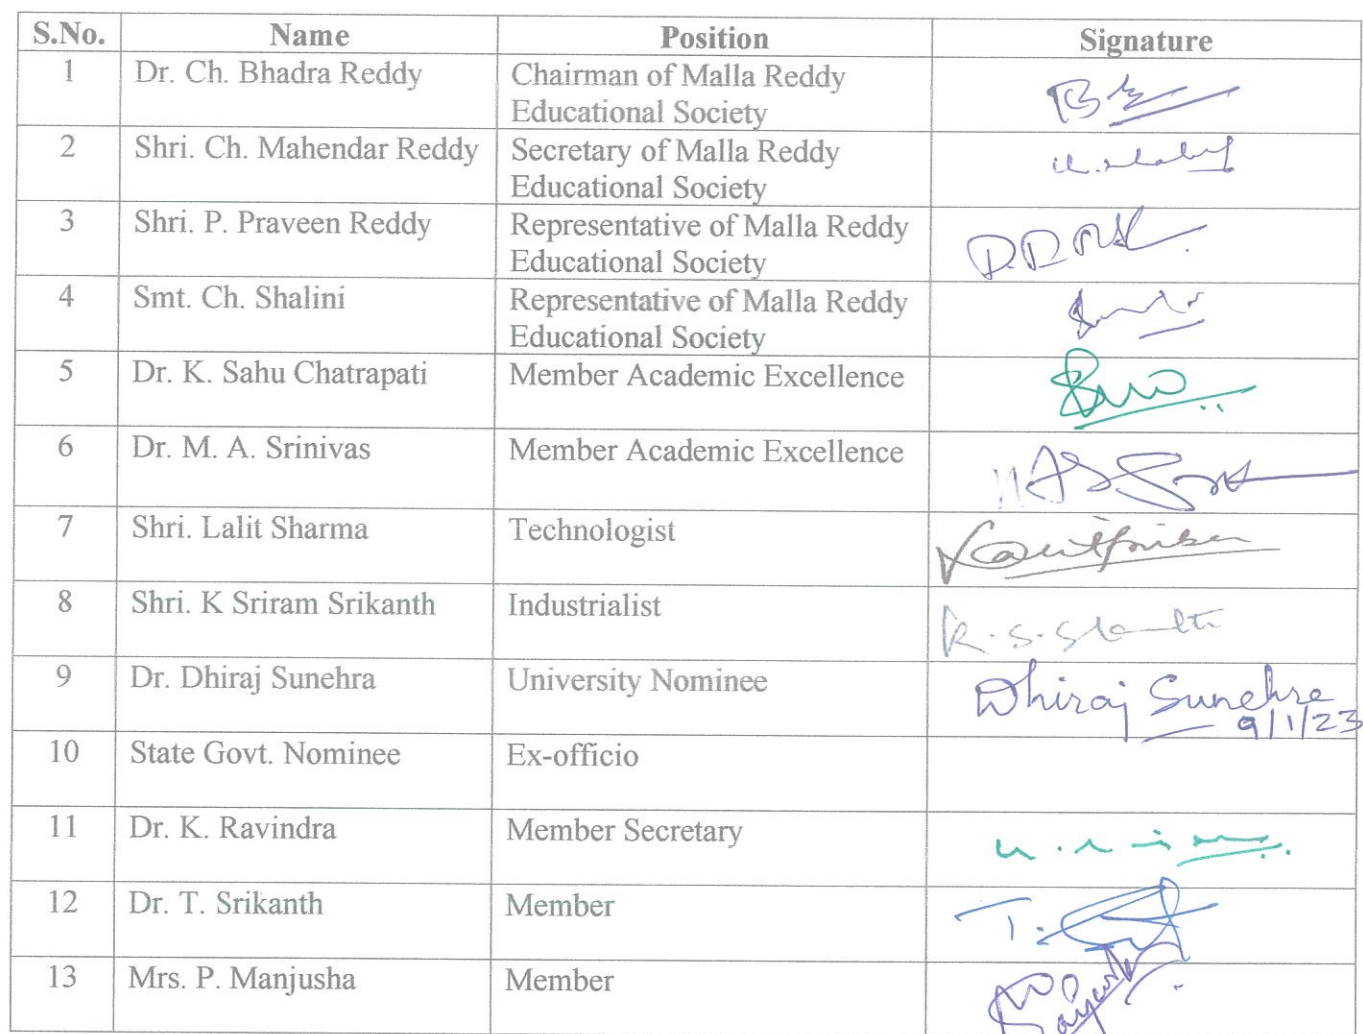 S.No. Name Position Signature
1 Dr. Ch. Bhadra Reddy Chairman of Malla Reddy
Educational Society
2 Shri. Ch. Mahendar Reddy Secretary of Malla Reddy
Educational Society
3 Shri. P. Praveen Reddy Representative of Malla Reddy
Educational Society
4 Smt. Ch. Shalini Representative of Malla Reddy
Educational Society
5 Dr. K. Sahu Chatrapati Member Academic Excellence
6 Dr. M. A. Srinivas Member Academic Excellence
7 Shri. Lalit Sharma Technologist
8 Shri. K Sriram Srikanth Industrialist
9 Dr. Dhiraj Sunehra University Nominee Dhiraj Sunehra
9/1/23
10 State Govt. Nominee Ex-officio
11 Dr. K. Ravindra Member Secretary
12 Dr. T. Srikanth Member
13 Mrs. P. Manjusha Member